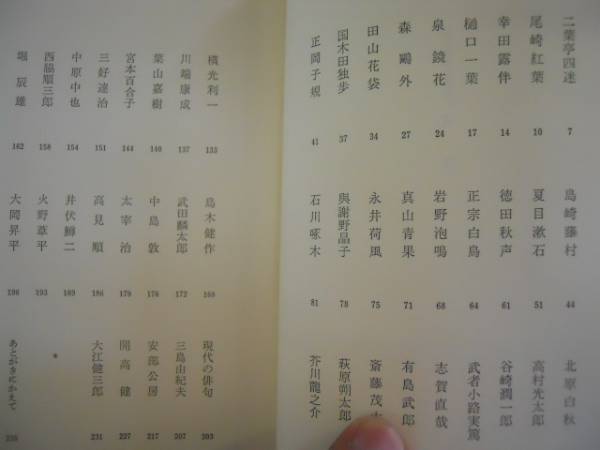 二葉亭四迷 7
尾崎紅葉 10
幸田露伴 14
樋口一葉 17
泉鏡花 24
森鷗外 27
田山花袋 34
国木田独歩 37
正岡子規 41
島崎藤村 44
夏目漱石 51
徳田秋声 61
正宗白鳥 64
岩野泡鳴 68
真山青果 71
永井荷風 75
與謝野晶子 78
石川啄木 81
北原白秋
高村光太郎
谷崎潤一郎
武者小路実篤
志賀直哉
有島武郎
斎藤茂
萩原朔太郎
芥川龍之介
横光利一 133
川端康成 137
葉山嘉樹 140
宮本百合子 144
三好達治 151
中原中也 154
西脇順三郎 158
堀辰雄 162
島木健作 168
武田麟太郎 172
中島敦 176
太宰治 179
高見順 186
井伏鱒二 189
火野葦平 193
大岡昇平 196
現代の俳句 203
三島由紀夫 207
安部公房 217
開高健 227
大江健三郎 231
*
あとがきにかえて